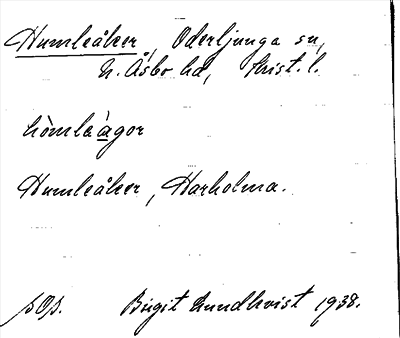 Humleåker, Oderljunga sn,
N. Åsbo hd, Krist. l.
hòmleàgor
Humleåker, Harholma.
pOp. Birgit Lundkvist 1938.